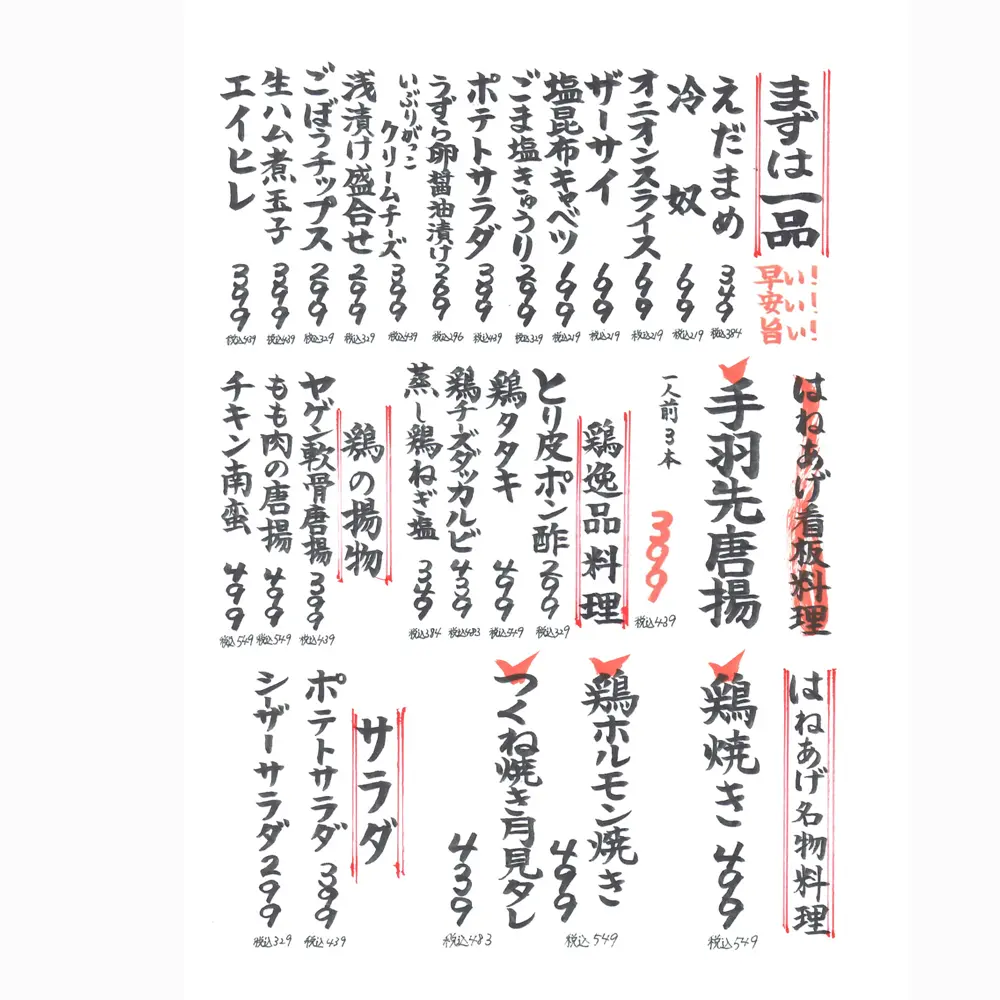 まずは一品
早い!
安い!
旨い!
えだまめ 349 税込384
冷奴 199 税込219
オニオンスライス 199 税込219
ザーサイ 199 税込219
塩昆布キャベツ 199 税込219
ごま塩きゅうり 299 税込329
ポテトサラダ 399 税込439
うずら卵醤油漬け 269 税込296
いぶりがっこ
クリームチーズ 399 税込439
浅漬け盛合せ 299 税込329
ごぼうチップス 299 税込329
生ハム煮玉子 399 税込439
エイヒレ 399 税込439
はねあげ看板料理
手羽先唐揚
一人前3本 399 税込439
鶏逸品料理
とり皮ポン酢 299 税込329
鶏タタキ 499 税込549
鶏チーズダッカルビ 439 税込483
蒸し鶏ねぎ塩 349 税込384
鶏の揚物
ヤゲン軟骨唐揚 399 税込439
もも肉の唐揚 499 税込549
チキン南蛮 499 税込549
はねあげ名物料理
鶏焼き 499 税込549
鶏ホルモン焼き 499 税込549
つくね焼き月見タレ 439 税込483
サラダ
ポテトサラダ 399 税込439
シーザーサラダ 299 税込329